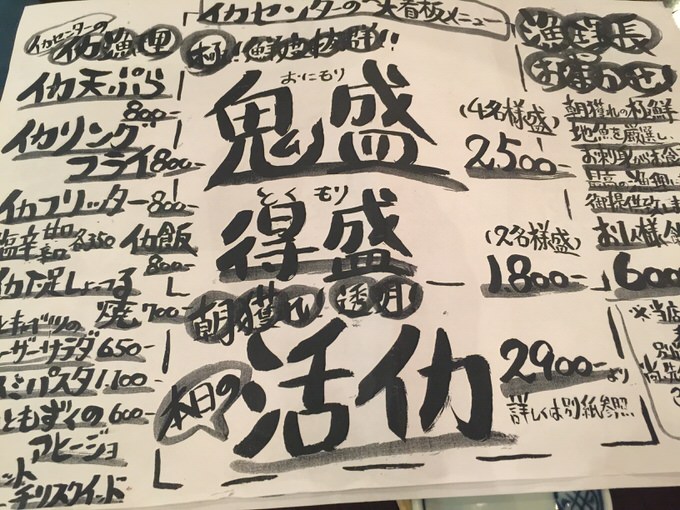 イカセンターの大看板メニュー
イカセンターの
イカ漁理
イカ天ぷら
800-
イカリング
フライ 800-
イカフリッター 800-
塩辛 各350
イカ飯
800-
焼 700-
ーザーサラダ 650-
ミパスタ 1,100-
ともずくの 600-
アヒージョ
ット
チリスクイッド
極!鮮度抜群!!
おにもり
鬼盛
(4名様盛)
2,500-
とくもり
得盛
(2名様盛)
1,800-
朝獲れ 透明
本日の
活イカ
2900-より
詳しくは別紙参照
漁労長
おまかせ
朝獲れの極鮮
地魚を厳選し
お刺身
御提供致しま
お1人様
600
※当店